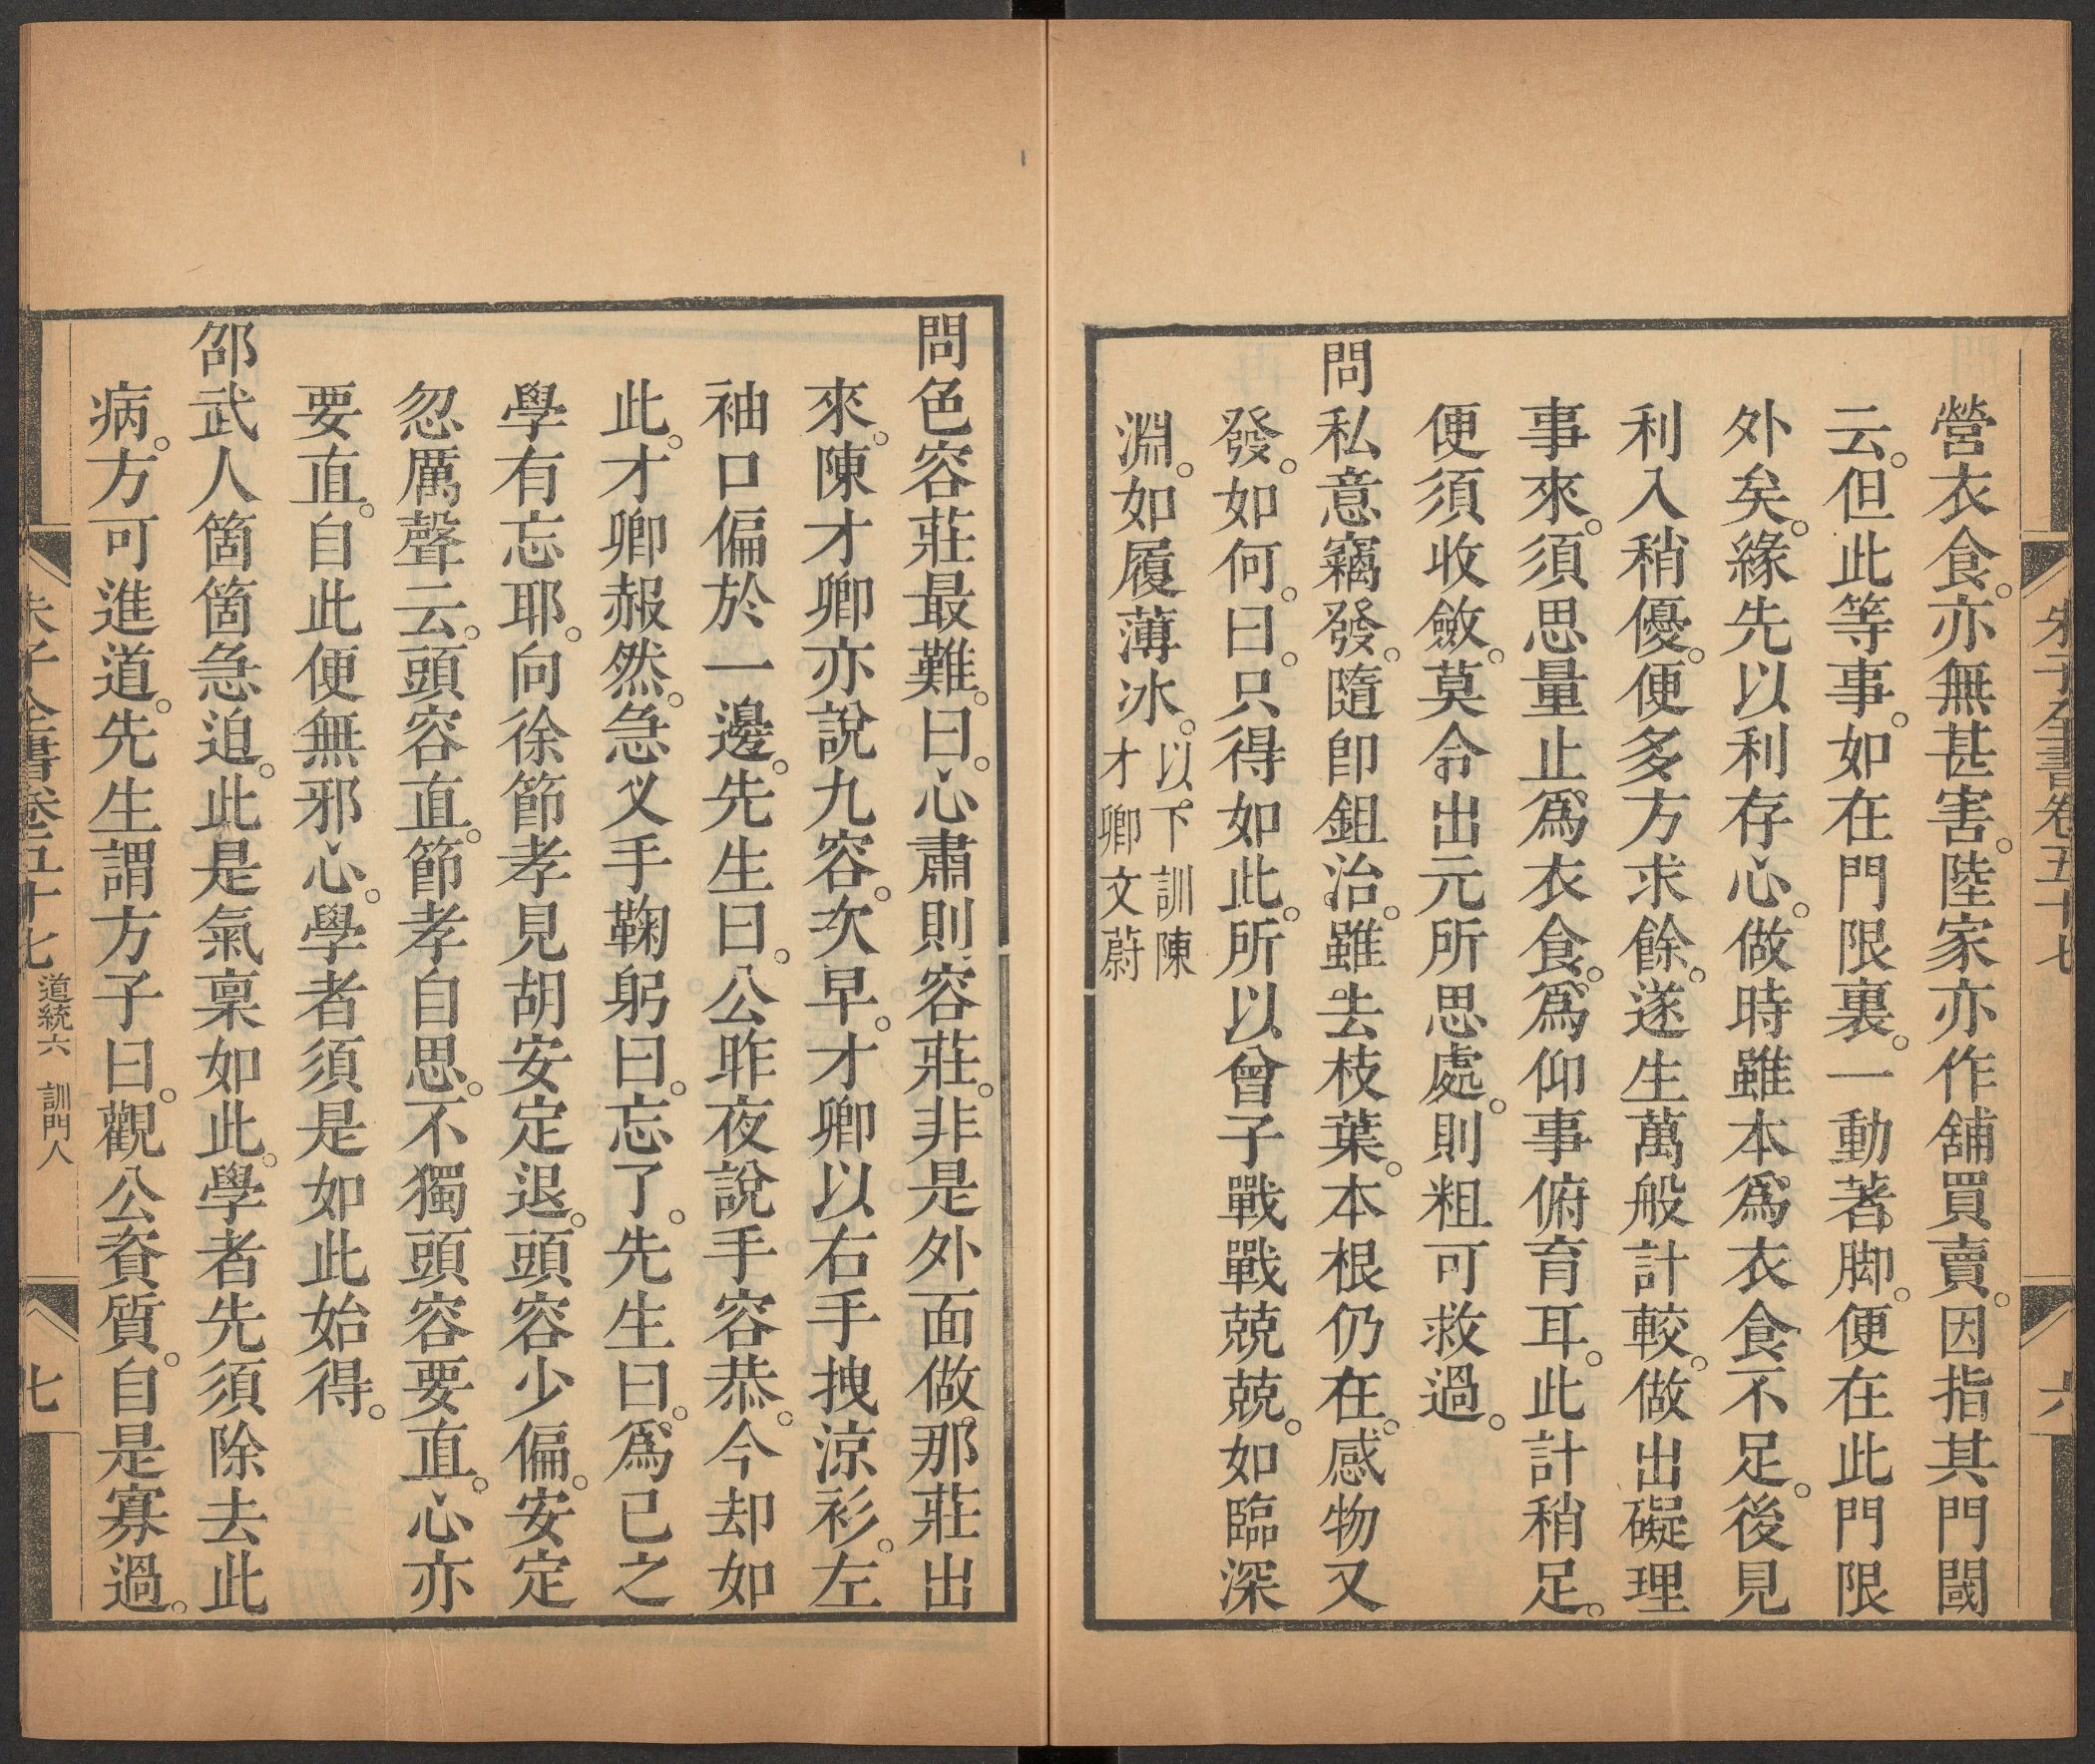 朱子全書卷五十七
六
營衣食。亦無甚害。陸家亦作舖買賣。因指其門閾
云。但此等事。如在門限裏。一動著脚。便在此門限
外矣。緣先以利存心。做時雖本爲衣食不足。後見
利入稍優。便多方求餘。遂生萬般計較。做出礙理
事來。須思量止爲衣食。爲仰事俯育耳。此計稍足。
便須收斂。莫令出元所思處。則粗可救過。
問私意竊發。隨卽鉏治。雖去枝葉。本根仍在。感物又
發。如何。曰。只得如此。所以曾子戰戰兢兢。如臨深
淵。如履薄冰。以下訓陳
才卿文蔚
問色容莊最難。曰。心肅則容莊。非是外面做那莊出
來。陳才卿亦說九容。次早。才卿以右手拽涼衫。左
袖口偏於一邊。先生曰。公昨夜說手容恭。今却如
此。才卿赧然。急叉手鞠躬曰。忘了。先生曰。爲己之
學有忘耶。向徐節孝見胡安定退。頭容少偏。安定
忽厲聲云。頭容直。節孝自思。不獨頭容要直。心亦
要直。自此便無邪心。學者須是如此始得。
邵武人箇箇急迫。此是氣稟如此。學者先須除去此
病。方可進道。先生謂方子曰。觀公資質。自是寡過。
朱子全書卷五十七 道統六 訓門人
七